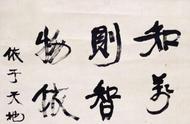 知
則智
物
依于天地